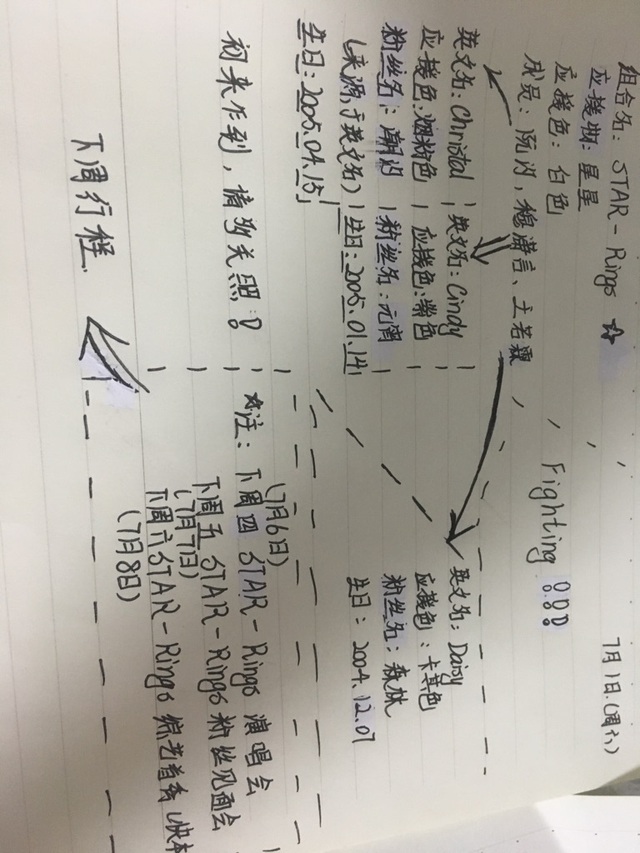 7月1日(周六)
组合名：STAR-Rings ☆
应援物：星星
应援色：白色
成员：阮汐，穆萧言、王若霖
Fighting !!!
英文名：Christal | 英文名：Cindy
应援色：烟粉色 | 应援色：紫色
粉丝名：潮汐 | 粉丝名：元宵
(来源于英文名) | 生日：2005.01.14
生日：2005.04.15
英文名：Daisy
应援色：卡其色
粉丝名：森林
生日：2004.12.07
初来乍到，请多关照！
下周行程
☆注：下周四 STAR-Rings 演唱会
(7月6日)
下周五 STAR-Rings 粉丝见面会
(7月7日)
下周六 STAR-Rings 综艺首秀 (快本
(7月8日)